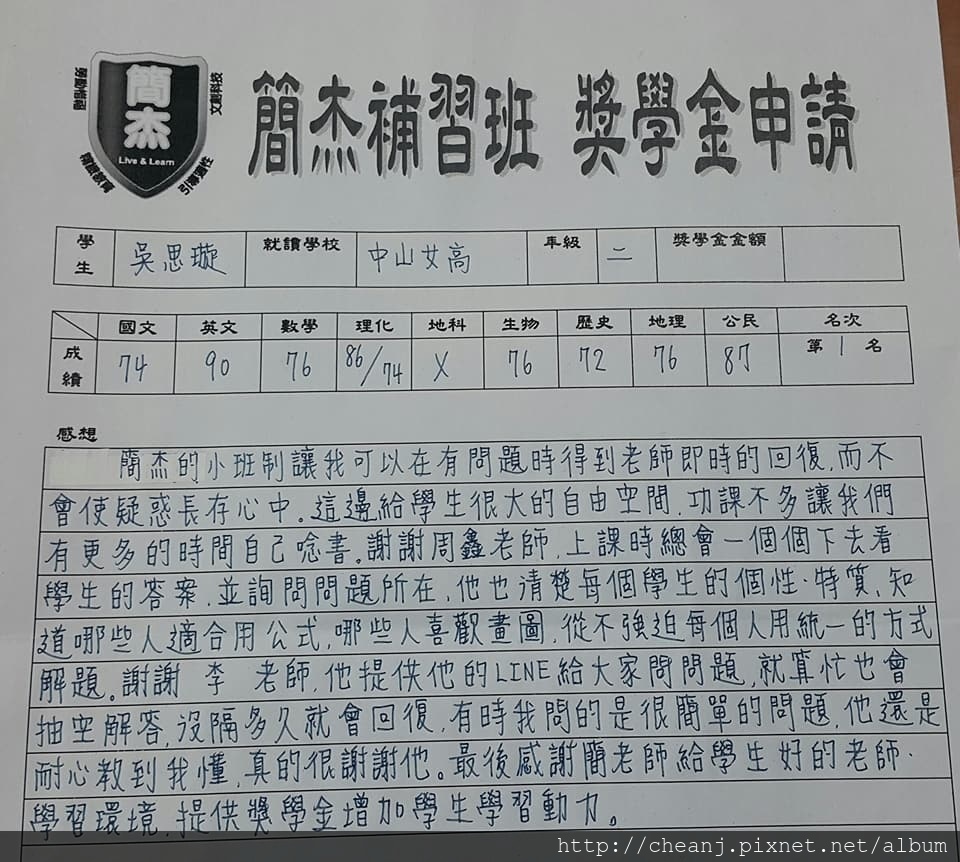 簡杰
Live & Learn
文創科技
引導適性
簡杰補習班 獎學金申請
學生 吳思璇 就讀學校 中山女高 年級 二 獎學金金額
國文 英文 數學 理化 地科 生物 歷史 地理 公民 名次
成績 74 90 76 86/74 X 76 72 76 87 第 1 名
感想
簡杰的小班制讓我可以在有問題時得到老師即時的回復,而不
會使疑惑長存心中。這邊給學生很大的自由空間,功課不多讓我們
有更多的時間自己唸書。謝謝周鑫老師,上課時總會一個個下去看
學生的答案,並詢問問題所在,他也清楚每個學生的個性·特質,知
道哪些人適合用公式,哪些人喜歡畫圖,從不強迫每個人用統一的方式
解題。謝謝 李 老師,他提供他的LINE給大家問問題,就算忙也會
抽空解答,沒隔多久就會回復,有時我問的是很簡單的問題,他還是
耐心教到我懂,真的很謝謝他。最後感謝簡老師給學生好的老師·
學習環境,提供獎學金增加學生學習動力。
http://cheanj.pixnet.net/album